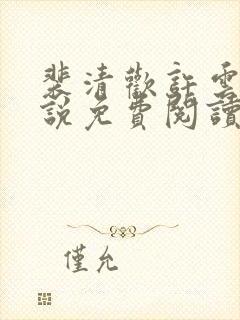 裴清歡許雲
說免費閱讀
僅允